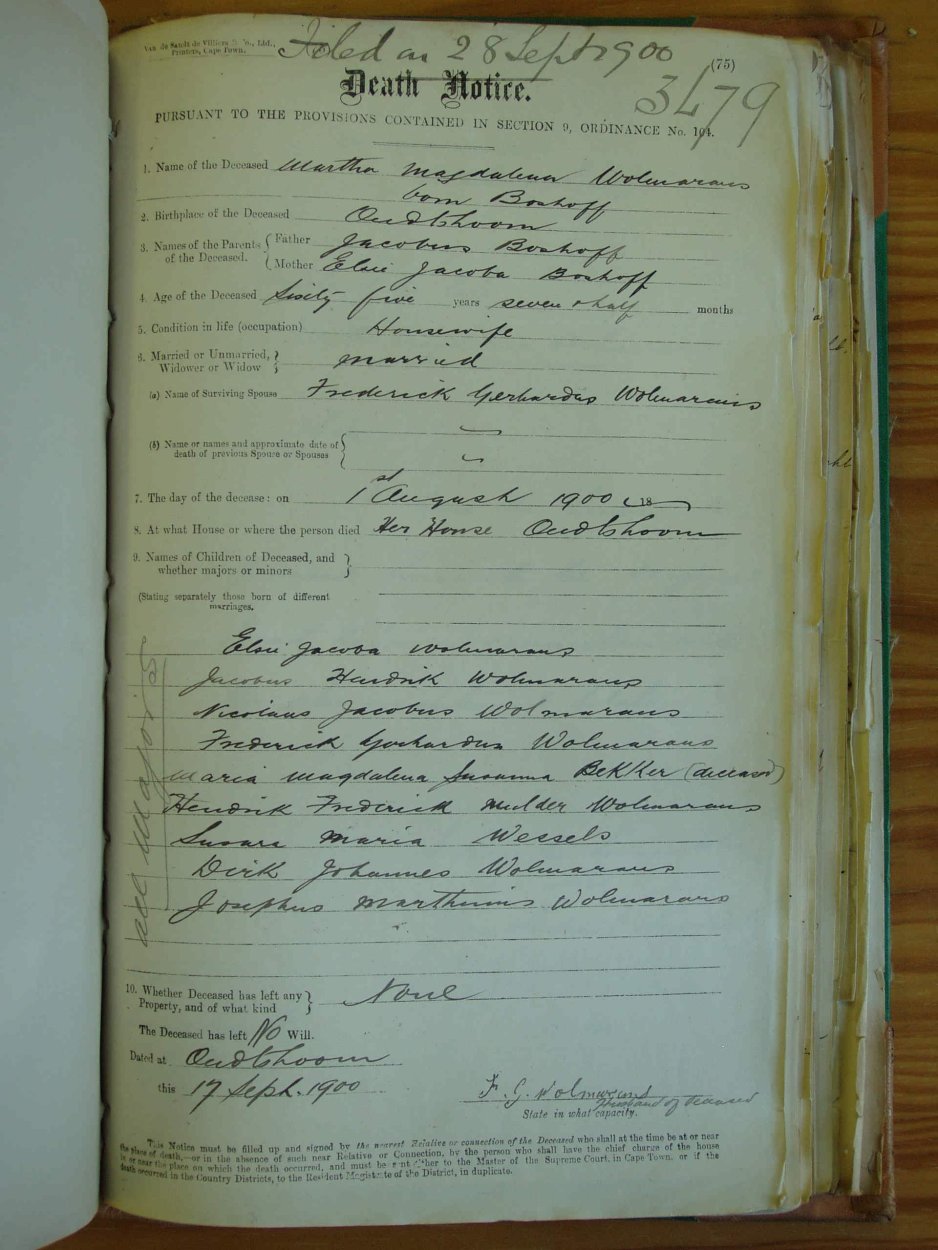 Van de Sandt de Villiers & Co., Ltd.,
Printers, Cape Town.
Filed on 28 Sept 1900
(75)
Death Notice.
3479
PURSUANT TO THE PROVISIONS CONTAINED IN SECTION 9, ORDINANCE No. 104.
1. Name of the Deceased Martha Magdalena Wolmarans
born Boshoff
2. Birthplace of the Deceased Oudtshoorn
3. Names of the Parents of the Deceased. { Father Jacobus Boshoff
Mother Elsie Jacoba Boshoff
4. Age of the Deceased Sixty five years seven & half months
5. Condition in life (occupation) Housewife
6. Married or Unmarried, Widower or Widow } married
(a) Name of Surviving Spouse Frederick Gerhardus Wolmarans
(b) Name or names and approximate date of
death of previous Spouse or Spouses
7. The day of the decease: on 1st August 1900 18
8. At what House or where the person died Her House Oudtshoorn
9. Names of Children of Deceased, and
whether majors or minors
(Stating separately those born of different
marriages.
all majors
Elsie Jacoba Wolmarans
Jacobus Hendrik Wolmarans
Nicolaas Jacobus Wolmarans
Frederick Gerhardus Wolmarans
Maria Magdalena Susanna Bekker (deceased)
Hendrik Frederick Mulder Wolmarans
Susara Maria Wessels
Dirk Johannes Wolmarans
Josephus Marthinus Wolmarans
10. Whether Deceased has left any Property, and of what kind } None
The Deceased has left No Will.
Dated at Oudtshoorn
this 17 Sept. 1900
F. G. Wolmarans
Husband of Deceased
State in what capacity.
This Notice must be filled up and signed by the nearest Relative or connection of the Deceased who shall at the time be at or near
the place of death,—or in the absence of such near Relative or Connection, by the person who shall have the chief charge of the house
in or near the place on which the death occurred, and must be sent either to the Master of the Supreme Court, in Cape Town, or if the
death occurred in the Country Districts, to the Resident Magistrate of the District, in duplicate.